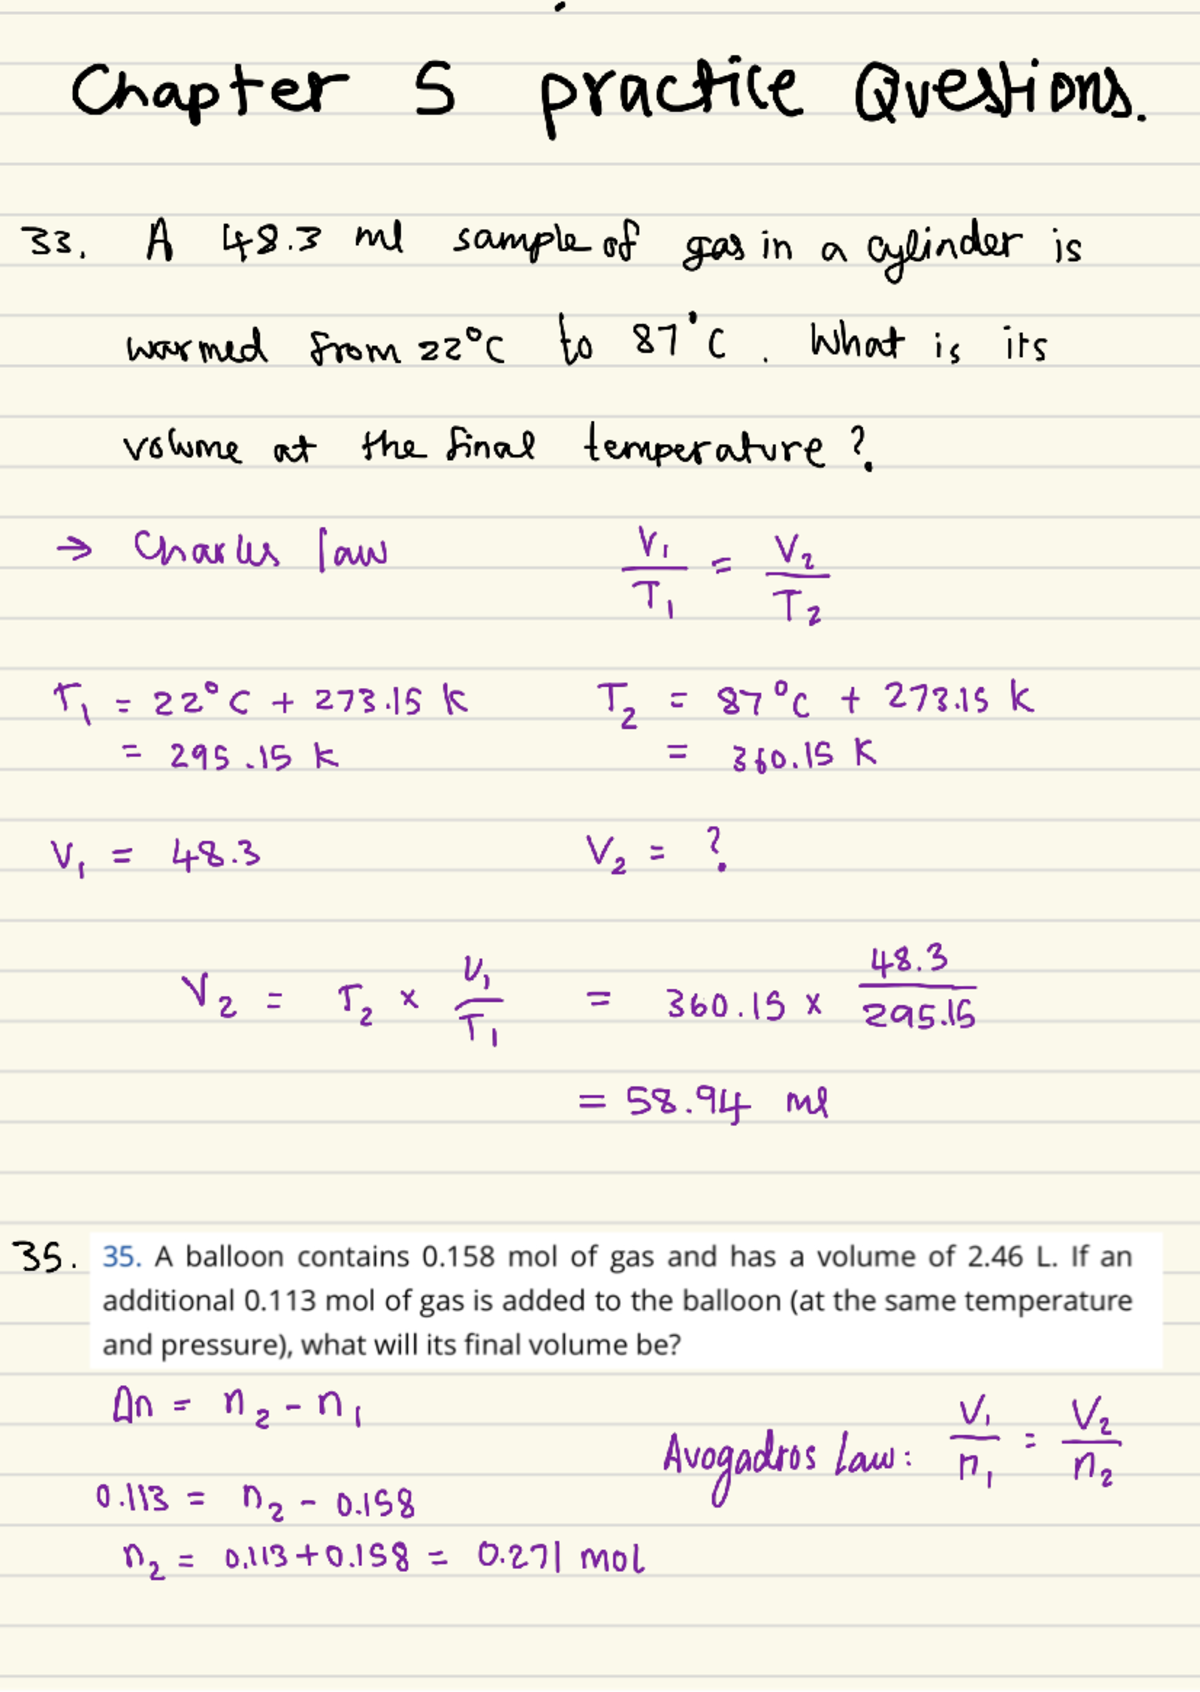 Chapter 5 practice Questions.
33. A 48.3 ml sample of gas in a cylinder is
warmed from 22°C to 87°C. What is its
volume at the final temperature?
→ Charles law V₁/T₁ = V₂/T₂
T₁ = 22°C + 273.15 K T₂ = 87°C + 273.15 K
= 295.15 K = 360.15 K
V₁ = 48.3 V₂ = ?
V₂ = T₂ × V₁/T₁ = 360.15 × 48.3/295.15
= 58.94 ml
35. 35. A balloon contains 0.158 mol of gas and has a volume of 2.46 L. If an
additional 0.113 mol of gas is added to the balloon (at the same temperature
and pressure), what will its final volume be?
Δn = n₂ - n₁
Avogadros Law: V₁/n₁ = V₂/n₂
0.113 = n₂ - 0.158
n₂ = 0.113 + 0.158 = 0.271 mol